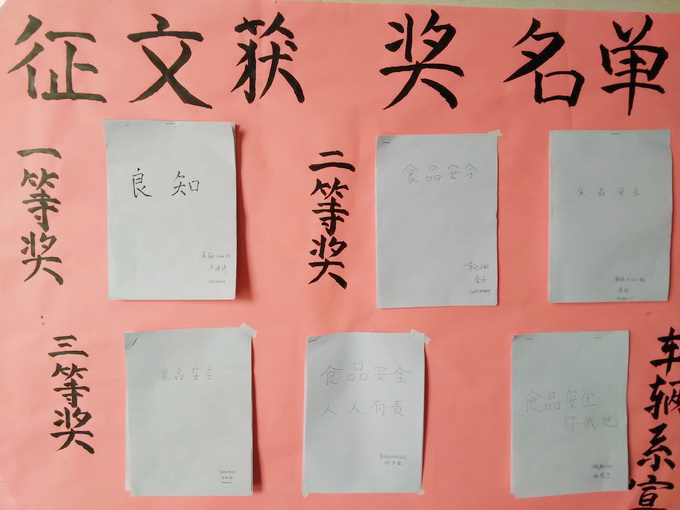 征文获奖名单
一等奖
良知
二等奖
食品安全
食品安全
三等奖
食品安全
食品安全
人人有责
食品安全
你我他
车辆系宣